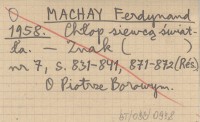 O MACHAY Ferdynand
1958. Chłop siewcą świat-
ła. — Znak ( )
nr 7, s. 831-841, 871-872 (Rés)
O Piotrze Borowym.